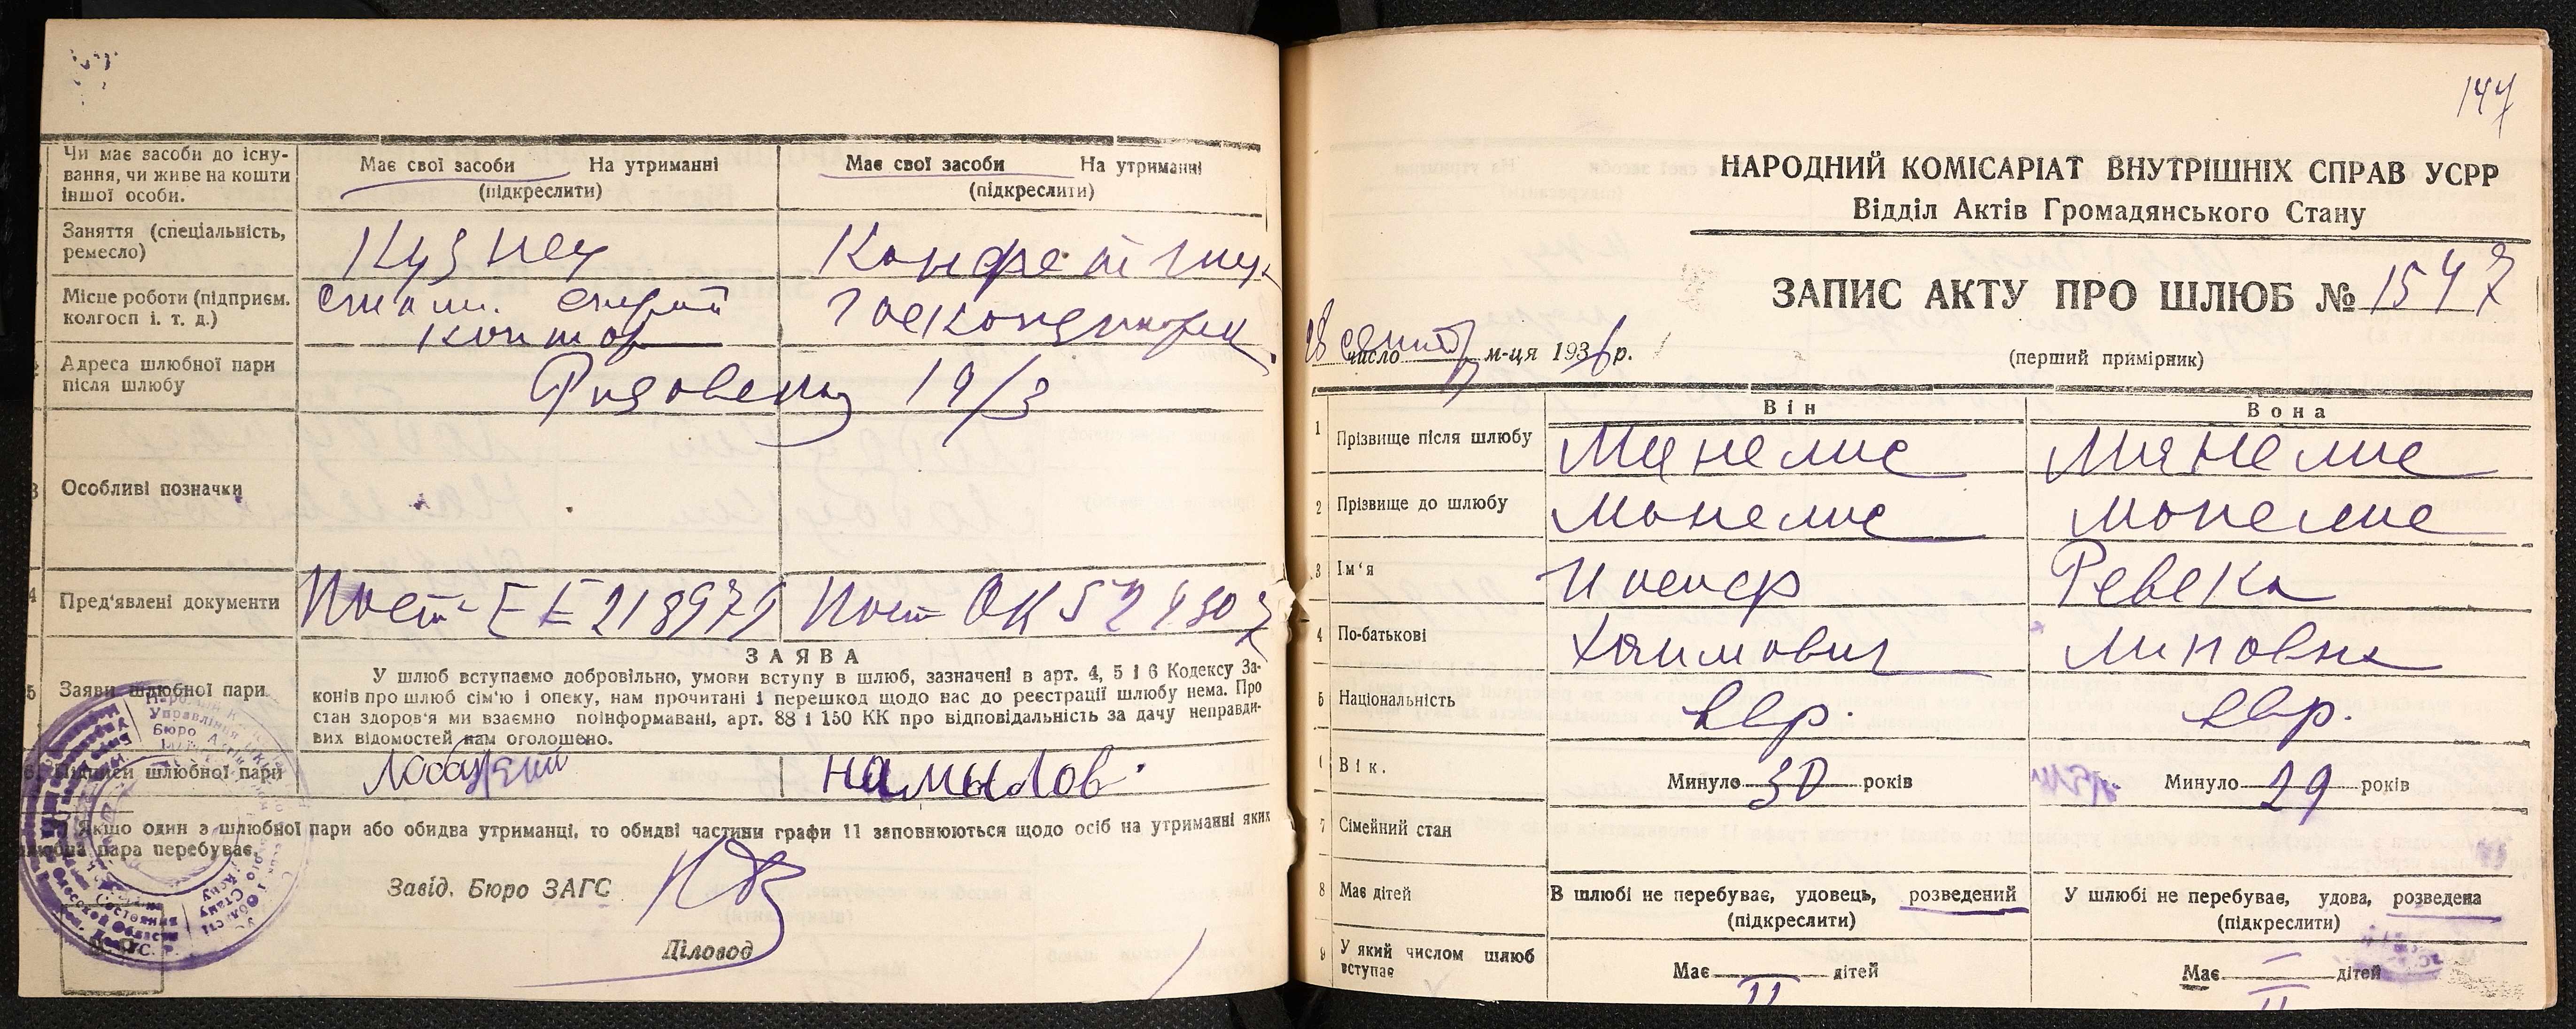 Чи має засоби до існу-
вання, чи живе на кошти
іншої особи.
Має свої засоби На утриманні
(підкреслити)
Має свої засоби На утриманні
(підкреслити)
Заняття (спеціальність,
ремесло)
Кузнец
Місце роботи (підприєм.
колгосп і. т. д.)
контор
Адреса шлюбної пари
після шлюбу
19/3
Особливі позначки
Пред'явлені документи
Посп ЕЕ 218979
Посп ОК 524307
ЗАЯВА
Заяви шлюбної пари
У шлюб вступаємо добровільно, умови вступу в шлюб, зазначені в арт. 4, 5 і 6 Кодексу За-
конів про шлюб сім'ю і опеку, нам прочитані і перешкод щодо нас до реєстрації шлюбу нема. Про
стан здоров'я ми взаємно поінформавані, арт. 88 і 150 КК про відповідальність за дачу неправди-
вих відомостей нам оголошено.
Підписи шлюбної пари
Якщо один з шлюбної пари або обидва утриманці, то обидві частини графи 11 заповнюються щодо осіб на утриманні яких
шлюбна пара перебуває.
Завід. Бюро ЗАГС
Діловод
147
НАРОДНИЙ КОМІСАРІАТ ВНУТРІШНІХ СПРАВ УСРР
Відділ Актів Громадянського Стану
ЗАПИС АКТУ ПРО ШЛЮБ № 1547
28 число м-ця 1936 р.
(перший примірник)
Він Вона
1 Прізвище після шлюбу Манелис Манелис
2 Прізвище до шлюбу Манелис Манелис
3 Ім'я Иосиф Ревека
4 По-батькові Хаимович
5 Національність евр. евр.
Вік. Минуло 30 років Минуло 29 років
7 Сімейний стан
8 Має дітей
В шлюбі не перебуває, удовець, розведений
(підкреслити)
У шлюбі не перебуває, удова, розведена
(підкреслити)
9 У який числом шлюб
вступає
Має дітей Має — дітей
II II